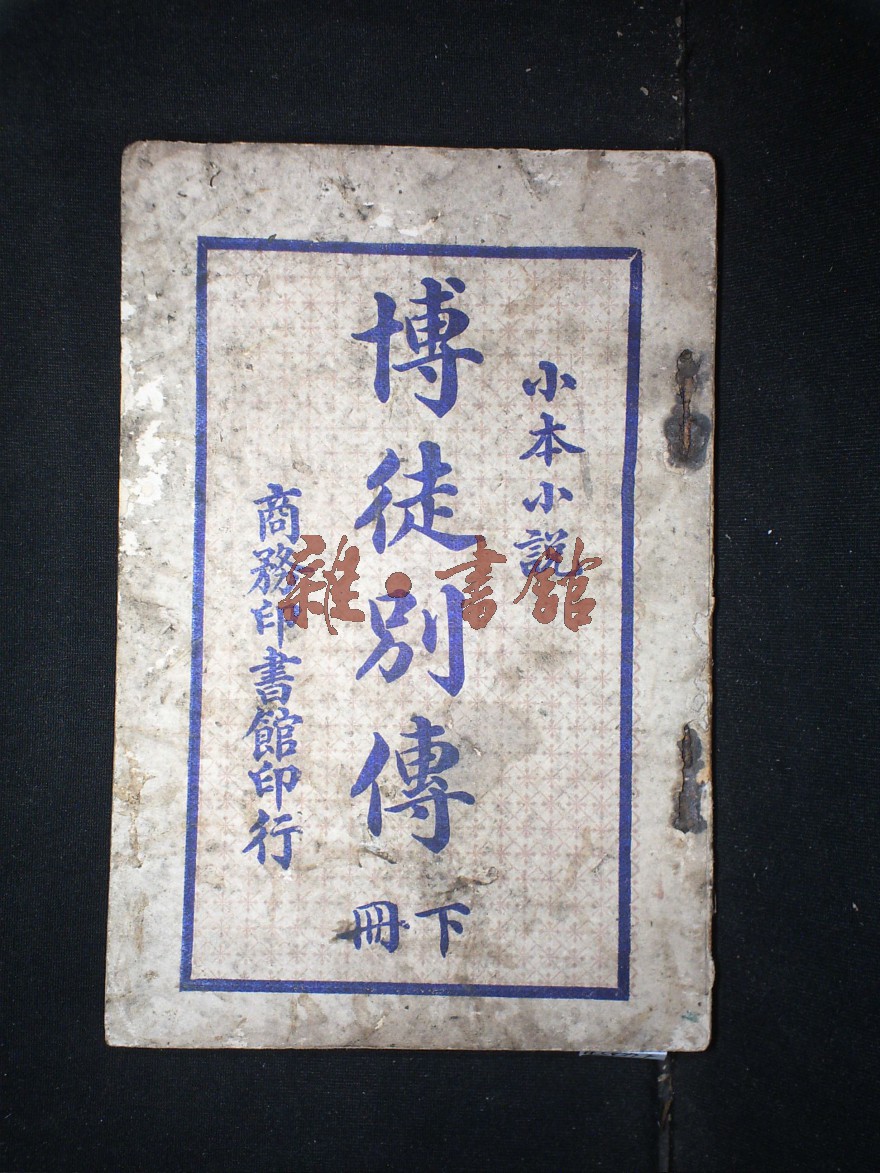 小本小説
博徒別傳
下冊
商務印書館印行
雜·書館